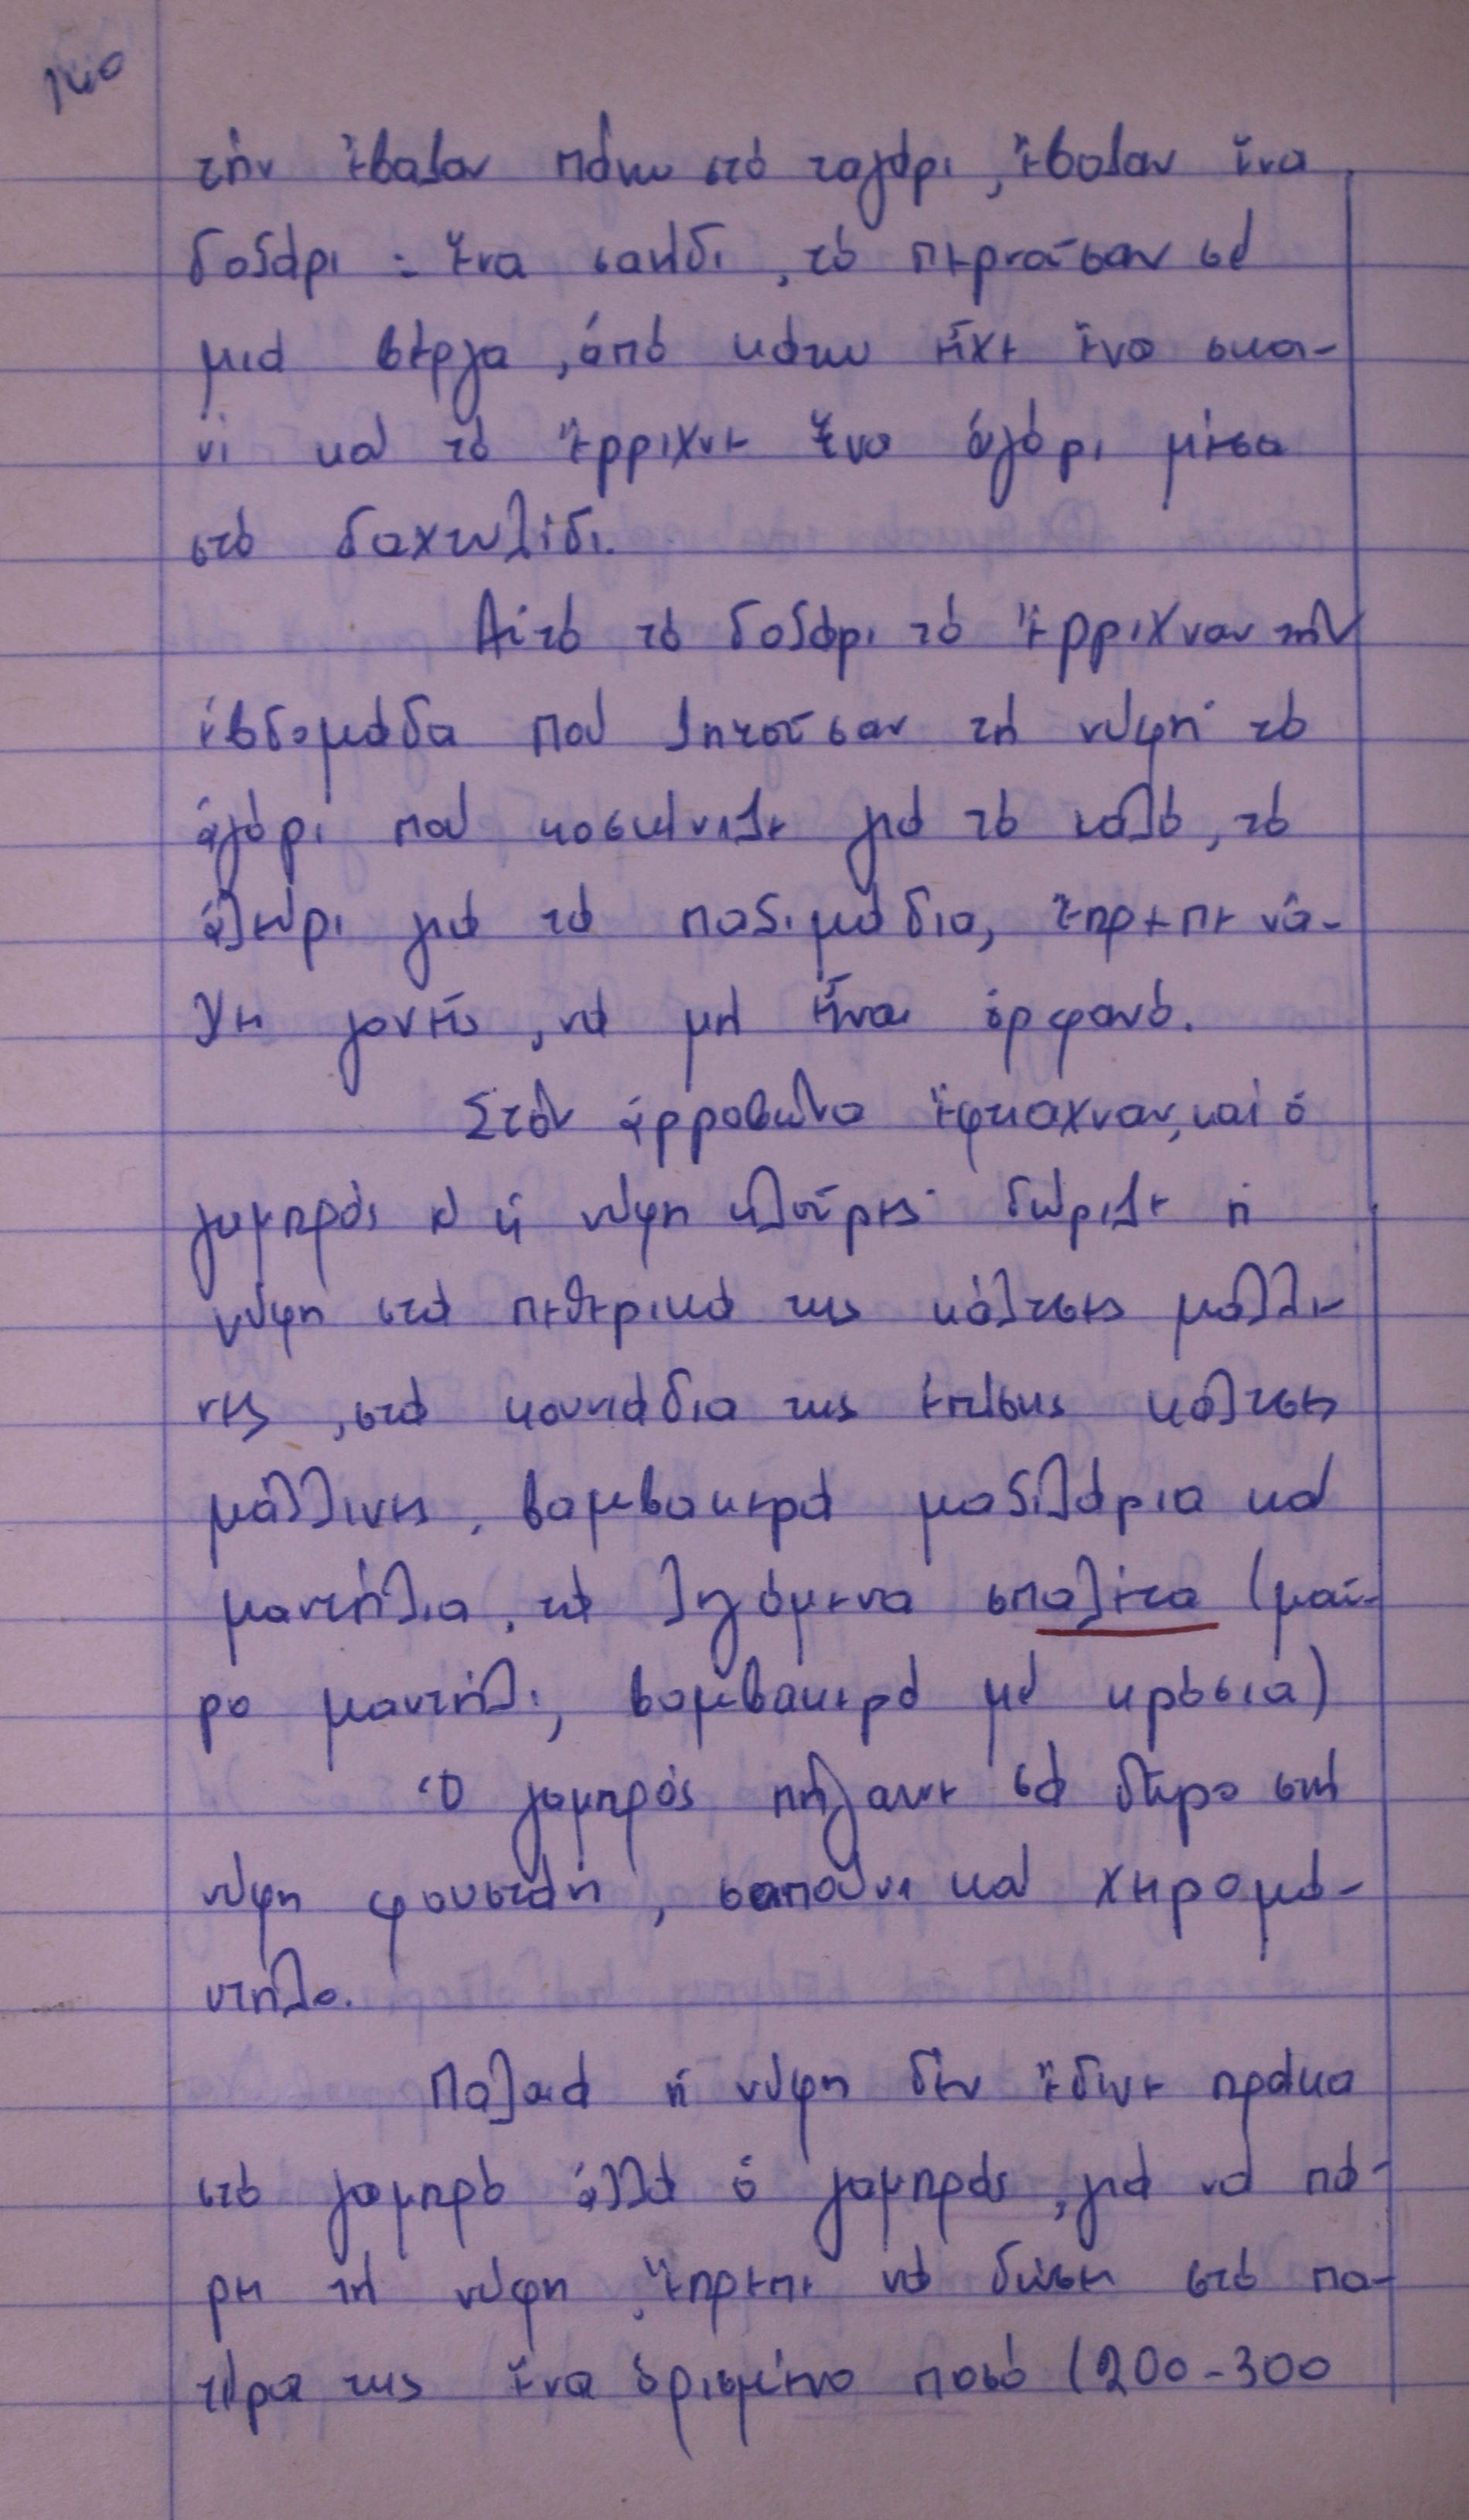 140
τήν ἔβαζαν πάνω στό ταγάρι, ἔβαζαν ἕνα
δοξάρι = ἕνα σανίδι, τό περνοῦσαν σέ
μιά βέργα, ἀπό κάτω εἶχε ἕνα σκα-
νί καί τό ἔρριχνε ἕνα ἀγόρι μέσα
στό δαχτυλίδι.
Αὐτό τό δοξάρι τό ἔρριχναν τήν
ἑβδομάδα πού ζητοῦσαν τή νύφη· τό
ἀγόρι πού κοσκίνιζε γιά τό καλό, τό
ἀλεύρι γιά τά παξιμάδια, ἔπρεπε νἄ-
χη γονεῖς, νά μή εἶναι ὀρφανό.
Στόν ἀρραβῶνα ἔφτιαχναν, καί ὁ
γαμπρός κ' ἡ νύφη κλοῦρες· δώριζε ἡ
νύφη στά πεθερικά της κάλτσες μάλλι-
νες, στά κουνιάδια της ἐπίσης κάλτσες
μάλλινες, βαμβακερά μαξιλάρια καί
μαντήλια, τά λεγόμενα σπαλέτα (μαῦ-
ρο μαντήλι, βαμβακερό μέ κρόσια)
Ὁ γαμπρός πήγαινε σά δῶρο στή
νύφη φουστάνι, σαπούνι καί χειρομά-
ντηλο.
Παλαιά ἡ νύφη δέν ἔδινε προίκα
στό γαμπρό ἀλλά ὁ γαμπρός, γιά νά πά-
ρη τή νύφη, ἔπρεπε νά δώση στό πα-
τέρα της ἕνα ὁρισμένο ποσό (200-300